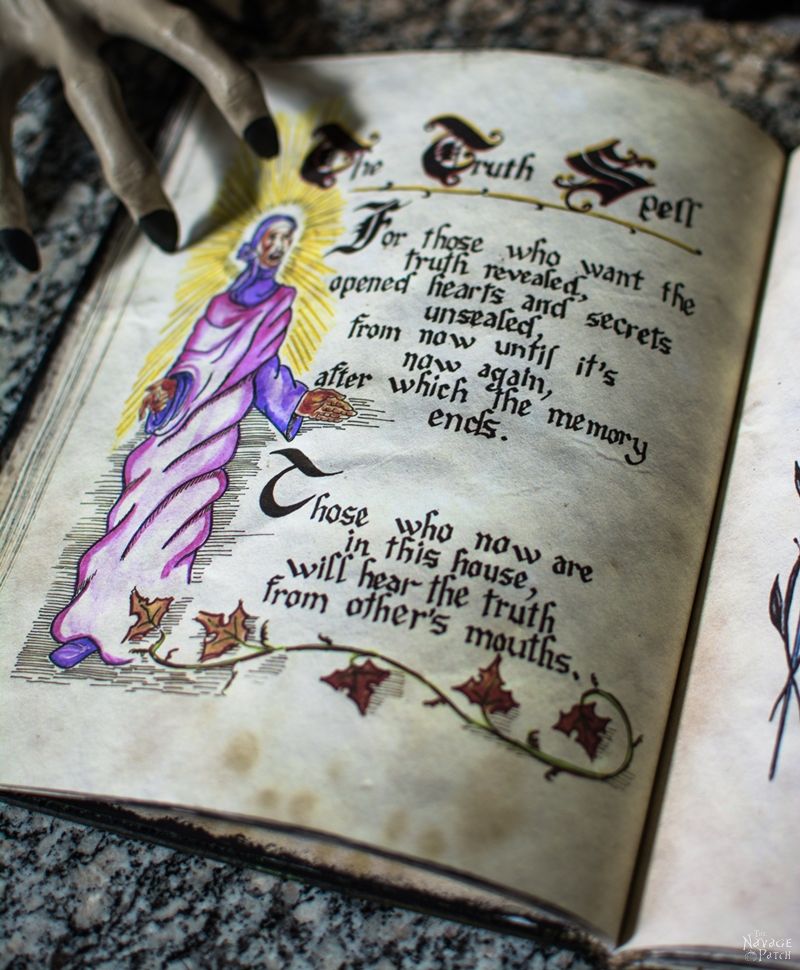 The Truth Spell
For those who want the
truth revealed,
opened hearts and secrets
unsealed,
from now until it's
now again,
after which the memory
ends.
Those who now are
in this house,
will hear the truth
from other's mouths.
THE
NAVAGE
PATCH